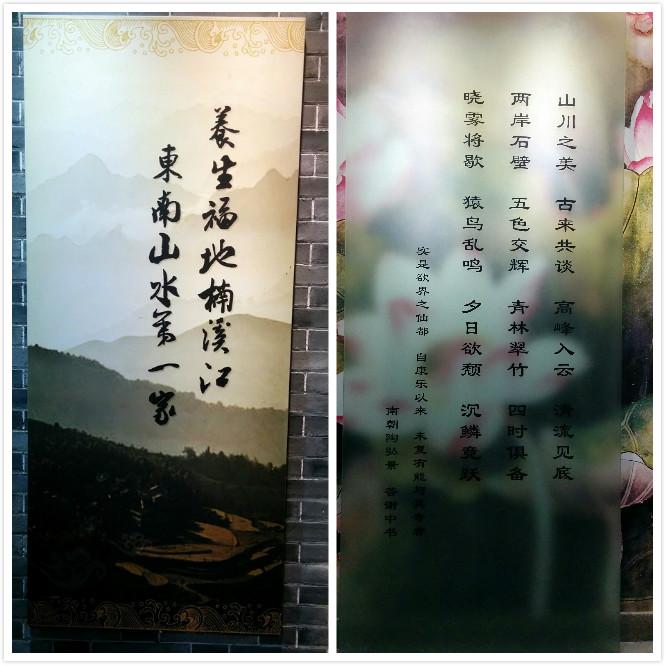 養生福地楠溪江
東南山水第一家
山川之美 古来共谈 高峰入云 清流见底
两岸石壁 五色交辉 青林翠竹 四时俱备
晓雾将歇 猿鸟乱鸣 夕日欲颓 沉鳞竞跃
实是欲界之仙都 自康乐以来 未复有能与其奇者
南朝陶弘景 答谢中书